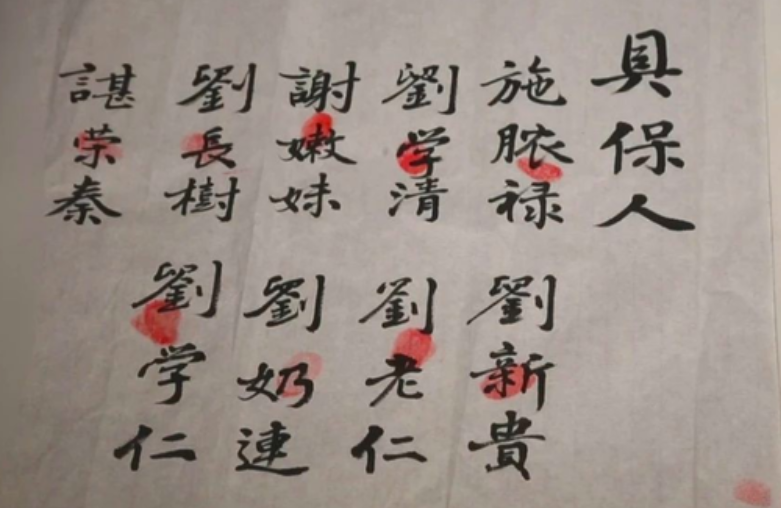 具保人
施脓禄
劉学清
謝嫩妹
劉長樹
諶荣秦
劉新貴
劉老仁
劉奶連
劉学仁